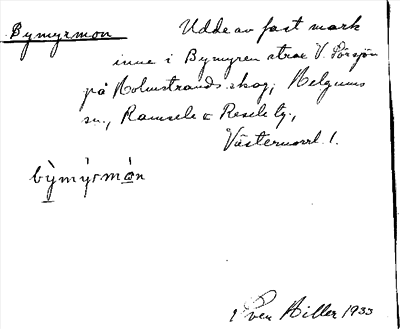 Bymyrmon
Udde av fast mark
inne i Bymyren strax V. Pörsjön
på Holmstrands skog, Helgums
sn., Ramsele & Resele tg.,
Västernorrl. l.
bỳmýrmòn
Sven Hiller 1933